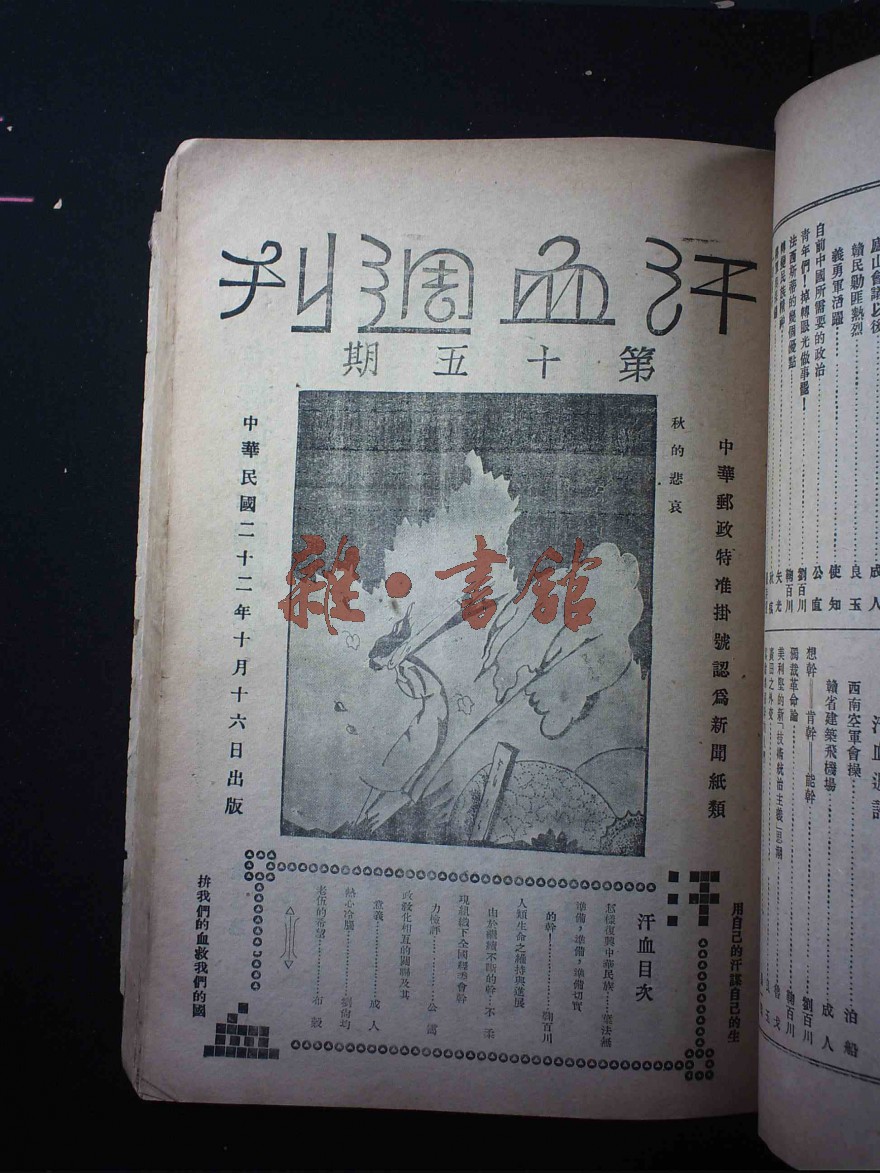 汗血週刊
第十五期
中華郵政特准掛號認爲新聞紙類
秋的悲哀
中華民國二十二年十月十六日出版
雜·書館
用自己的汗謀自己的生
汗血目次
怎樣復興中華民族
準備，準備，準備切實
的幹！…………鞠百川
人類生命之維持與進展
由於繼續不斷的幹…不柔
力檢評…………公
政敎化相互的關聯及其
意義…………成人
熱心冷腸…………劉
老伍的希望…………布穀
拚我們的血救我們的國
廬山會議以後…………成人
贛民勦匪熱烈…………良玉
義勇軍活躍…………使知
目前中國所需要的政治…………公直
青年們！掉轉眼光做事罷！…………劉百川
法西斯蒂的幾個優點…………鞠百川
西南空軍會操…………泊船
贛省建築飛機場…………成人
想幹——肯幹——能幹…………劉百川
獨裁革命論…………鞠百川
美利堅的新「技術統治主義」思潮